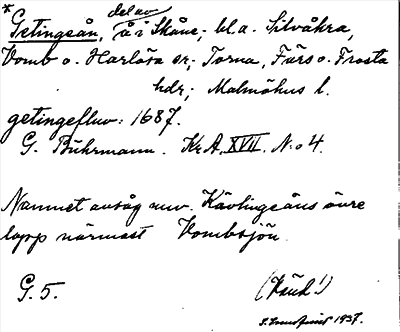 * Getingeån, del av å i Skåne; bl.a. Silvåkra,
Vomb o. Harlösa sr; Torna, Färs o. Frosta
hdr; Malmöhus l.
getingefluv: 1687.
G. Buhrmann. KrA, XVII, N:o 4.
Namnet avsåg urv. Kävlingeåns övre
lopp närmast Vombsjön.
G. 5.
1937.